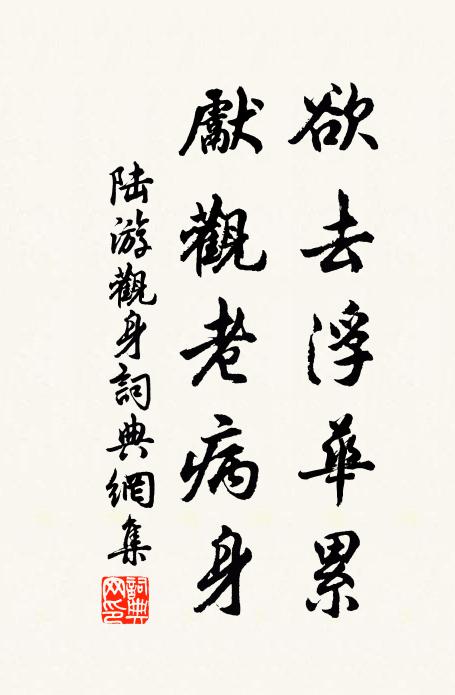 欲去浮華累
獻觀老病身
陆游觀身詞典網集
詞典网印